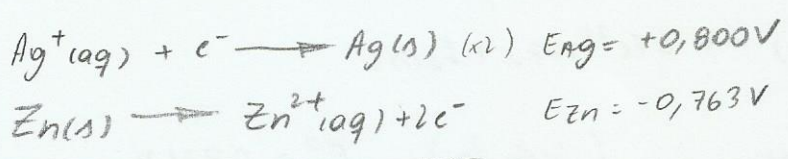 Ag⁺(aq) + e⁻ → Ag(s) (x2) EAg = +0,800V
Zn(s) → Zn²⁺(aq) + 2e⁻ EZn = -0,763V